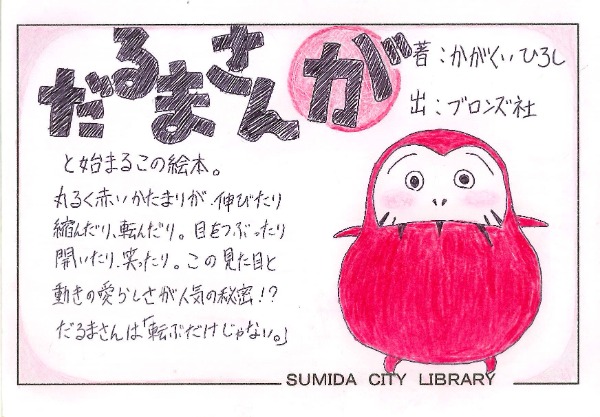 だるまさんが
著：かがくいひろし
出：ブロンズ社
と始まるこの絵本。
丸るく赤いかたまりが、伸びたり
縮んだり、転んだり。目をつぶったり
開いたり、笑ったり。この見た目と
動きの愛らしさが人気の秘密！？
だるまさんは「転ぶだけじゃない。」
SUMIDA CITY LIBRARY